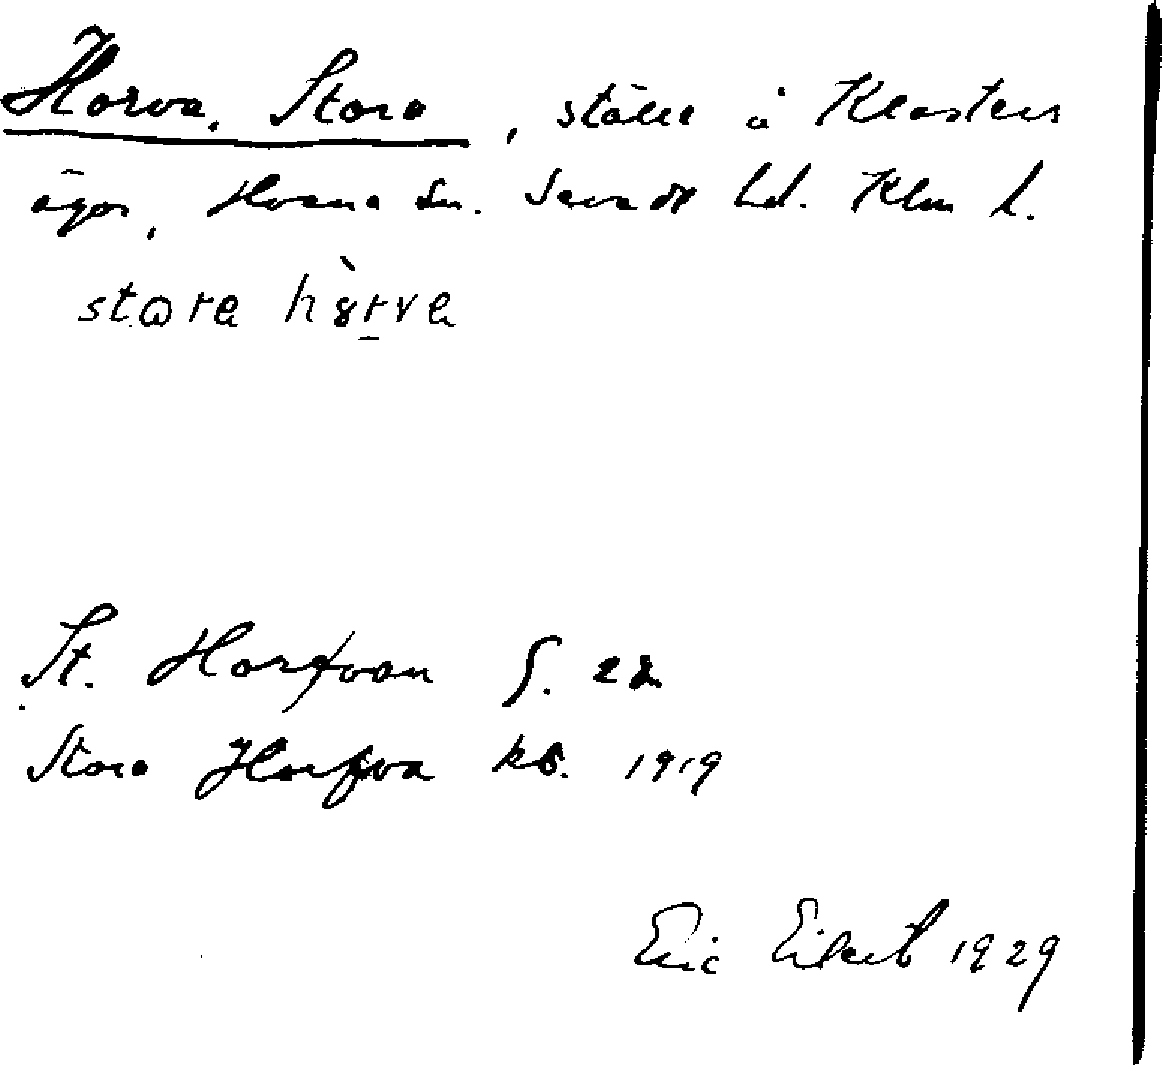 Horva, Stora, ställe å Klosters
ägor, Hvena sn. Sevede hd. Klm L.
stɷra hɤ̀rva
St. Horfvan S. 22
Stora Horfva kb. 1919
Eric Eilert 1929